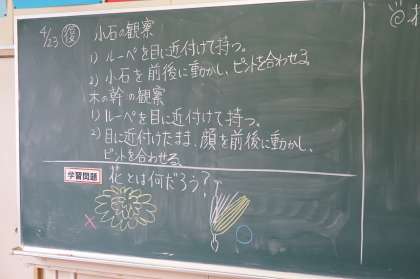 4/23 復 小石の観察
1) ルーペを目に近付けて持つ。
2) 小石を前後に動かし、ピントを合わせる。
木の幹の観察
1) ルーペを目に近付けて持つ。
2) 目に近付けたまま、顔を前後に動かし、
ピントを合わせる。
学習問題 花とは何だろう?